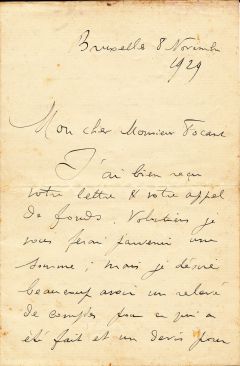 Bruxelles 8 Novembre
1929
Mon cher Monsieur
J'ai bien reçu
votre lettre & votre appel
de fonds. Volontiers je
vous ferai parvenir une
somme ; mais je désire
beaucoup avoir un relevé
de comptes pour ce qui a
été fait et un devis pour